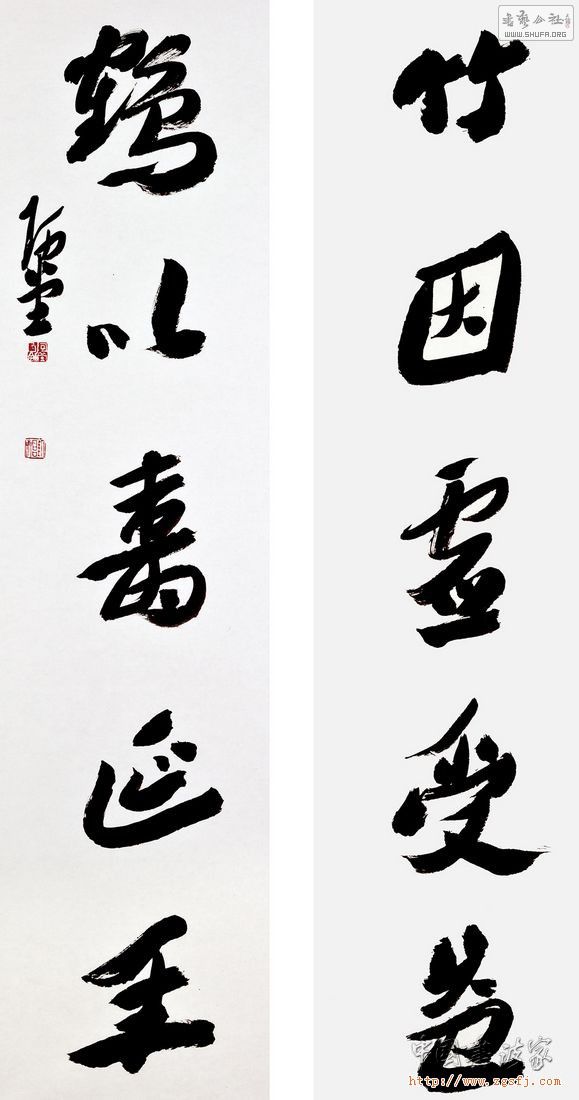 竹因虚受益
鹤以寿延年
书艺公社
WWW.SHUFA.ORG
中国书法家
http://www.zgsfj.com